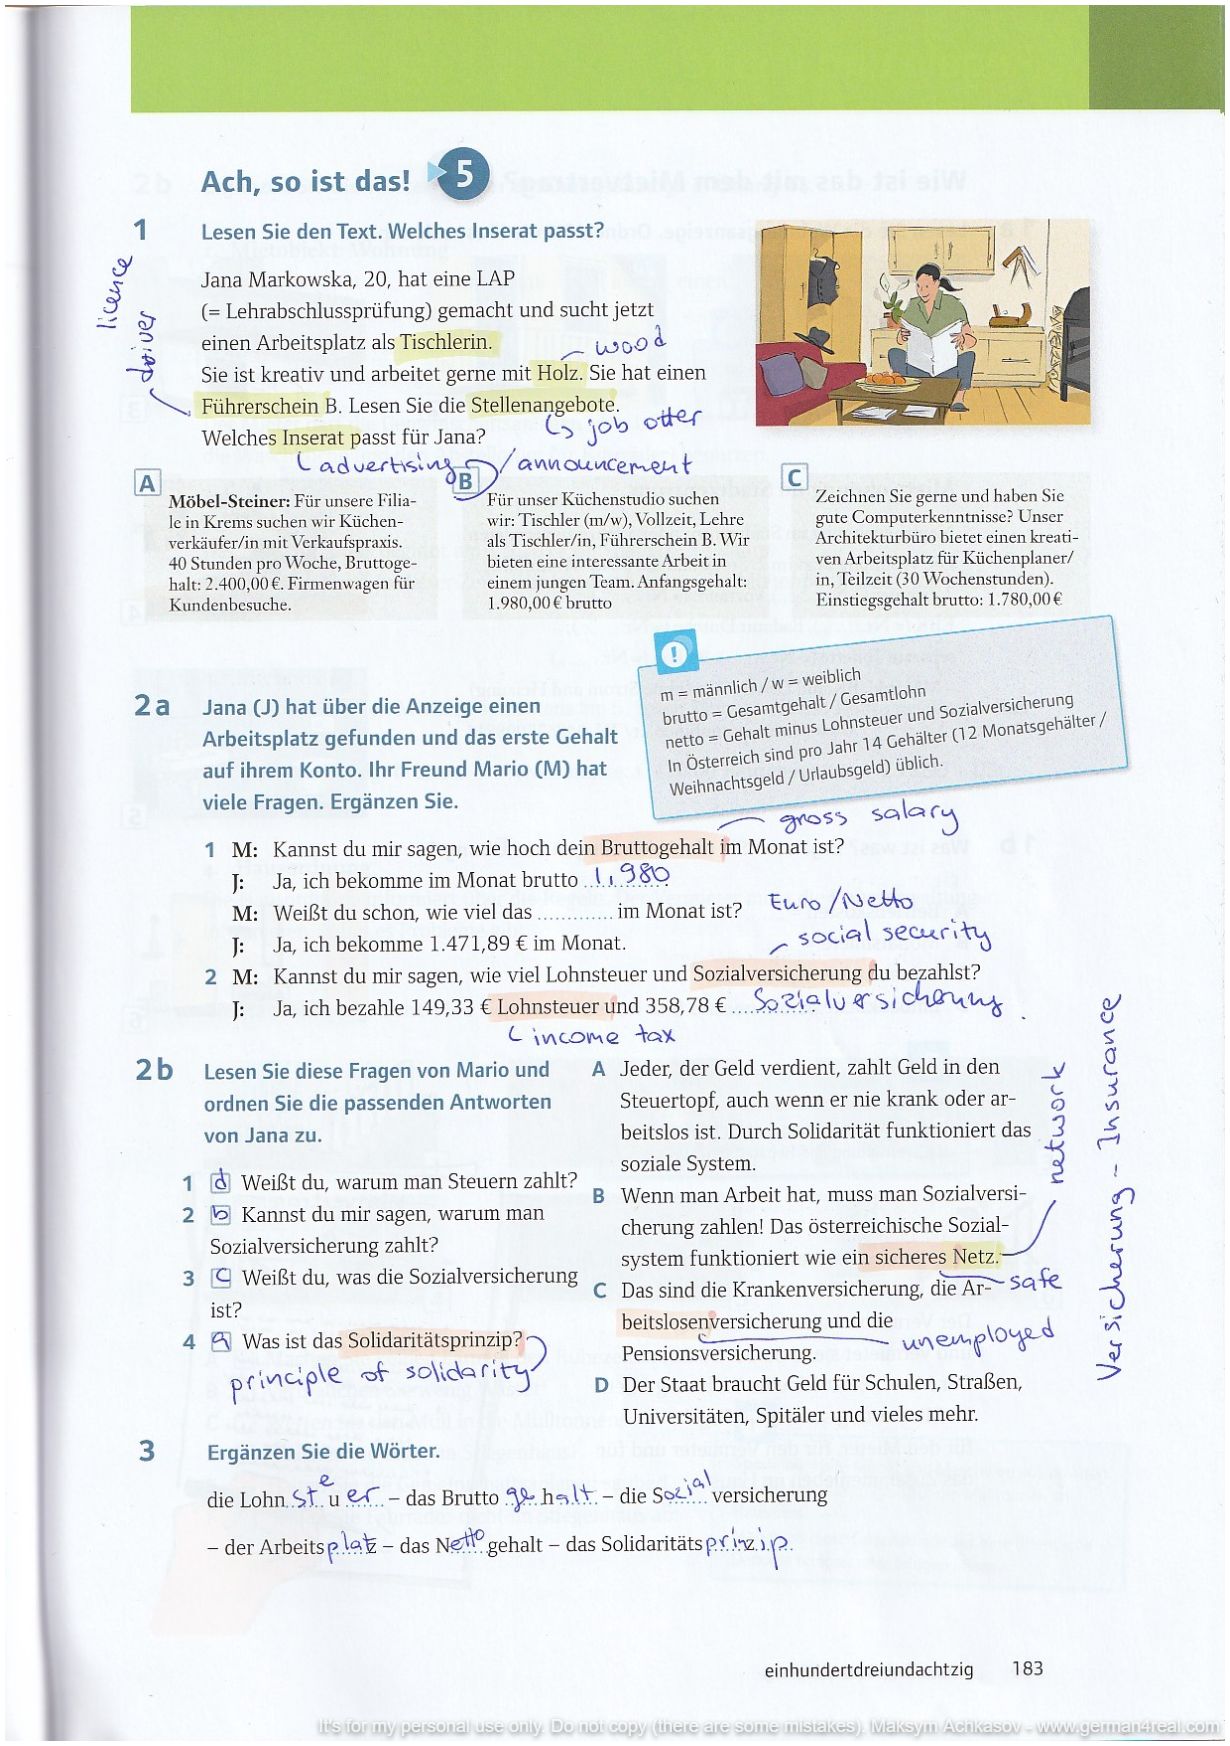 Ach, so ist das! 5
1 Lesen Sie den Text. Welches Inserat passt?
licence
driver
Jana Markowska, 20, hat eine LAP
(= Lehrabschlussprüfung) gemacht und sucht jetzt
einen Arbeitsplatz als Tischlerin.
wood
Sie ist kreativ und arbeitet gerne mit Holz. Sie hat einen
Führerschein B. Lesen Sie die Stellenangebote.
job offer
Welches Inserat passt für Jana?
advertising / announcement
A
Möbel-Steiner: Für unsere Filia-
le in Krems suchen wir Küchen-
verkäufer/in mit Verkaufspraxis.
40 Stunden pro Woche, Bruttoge-
halt: 2.400,00 €. Firmenwagen für
Kundenbesuche.
B
Für unser Küchenstudio suchen
wir: Tischler (m/w), Vollzeit, Lehre
als Tischler/in, Führerschein B. Wir
bieten eine interessante Arbeit in
einem jungen Team. Anfangsgehalt:
1.980,00 € brutto
C
Zeichnen Sie gerne und haben Sie
gute Computerkenntnisse? Unser
Architekturbüro bietet einen kreati-
ven Arbeitsplatz für Küchenplaner/
in, Teilzeit (30 Wochenstunden).
Einstiegsgehalt brutto: 1.780,00 €
!
m = männlich / w = weiblich
brutto = Gesamtgehalt / Gesamtlohn
netto = Gehalt minus Lohnsteuer und Sozialversicherung
In Österreich sind pro Jahr 14 Gehälter (12 Monatsgehälter /
Weihnachtsgeld / Urlaubsgeld) üblich.
2a Jana (J) hat über die Anzeige einen
Arbeitsplatz gefunden und das erste Gehalt
auf ihrem Konto. Ihr Freund Mario (M) hat
viele Fragen. Ergänzen Sie.
gross salary
1 M: Kannst du mir sagen, wie hoch dein Bruttogehalt im Monat ist?
J: Ja, ich bekomme im Monat brutto 1,980.
M: Weißt du schon, wie viel das ............. im Monat ist? Euro/Netto
J: Ja, ich bekomme 1.471,89 € im Monat.
social security
2 M: Kannst du mir sagen, wie viel Lohnsteuer und Sozialversicherung du bezahlst?
J: Ja, ich bezahle 149,33 € Lohnsteuer und 358,78 € Sozialversicherung.
income tax
2b Lesen Sie diese Fragen von Mario und
ordnen Sie die passenden Antworten
von Jana zu.
1 d Weißt du, warum man Steuern zahlt?
2 b Kannst du mir sagen, warum man
Sozialversicherung zahlt?
3 c Weißt du, was die Sozialversicherung
ist?
4 a Was ist das Solidaritätsprinzip?
principle of solidarity
A Jeder, der Geld verdient, zahlt Geld in den
Steuertopf, auch wenn er nie krank oder ar-
beitslos ist. Durch Solidarität funktioniert das
soziale System.
B Wenn man Arbeit hat, muss man Sozialversi-
cherung zahlen! Das österreichische Sozial-
system funktioniert wie ein sicheres Netz.
network
safe
C Das sind die Krankenversicherung, die Ar-
beitslosenversicherung und die
unemployed
Pensionsversicherung.
D Der Staat braucht Geld für Schulen, Straßen,
Universitäten, Spitäler und vieles mehr.
Versicherung - Insurance
3 Ergänzen Sie die Wörter.
die Lohnsteuer – das Bruttogehalt – die Sozialversicherung
– der Arbeitsplatz – das Nettogehalt – das Solidaritätsprinzip.
einhundertdreiundachtzig 183
It's for my personal use only. Do not copy (there are some mistakes). Maksym Achkasov - www.german4real.com